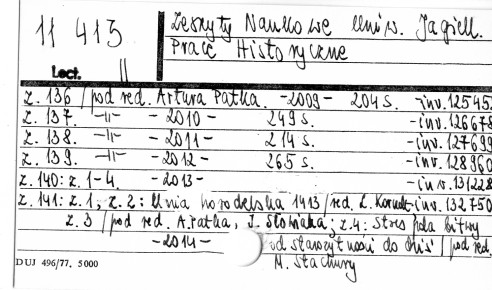 11 413
Zeszyty Naukowe Uniw. Jagiell.
Prace Historyczne
Lect. II
z. 136 / pod red. Artura Patka. -2009- 204 s. -inv. 125455
z. 137. -II- -2010- 249 s. -inv. 126678
z. 138. -II- -2011- 214 s. -inv. 127699
z. 139. -II- -2012- 265 s. -inv. 128960
z. 140: z. 1-4. -2013- -inv. 131228
z. 141: z. 1, z. 2: Unia horodelska 1413 / red. -inv. 132750
z. 3 / pod red. A. Patka, J. ; z. 4: Stres pola bitwy
-2014- od starożytności do dziś / pod red.
M. Stachury
DUJ 496/77. 5000